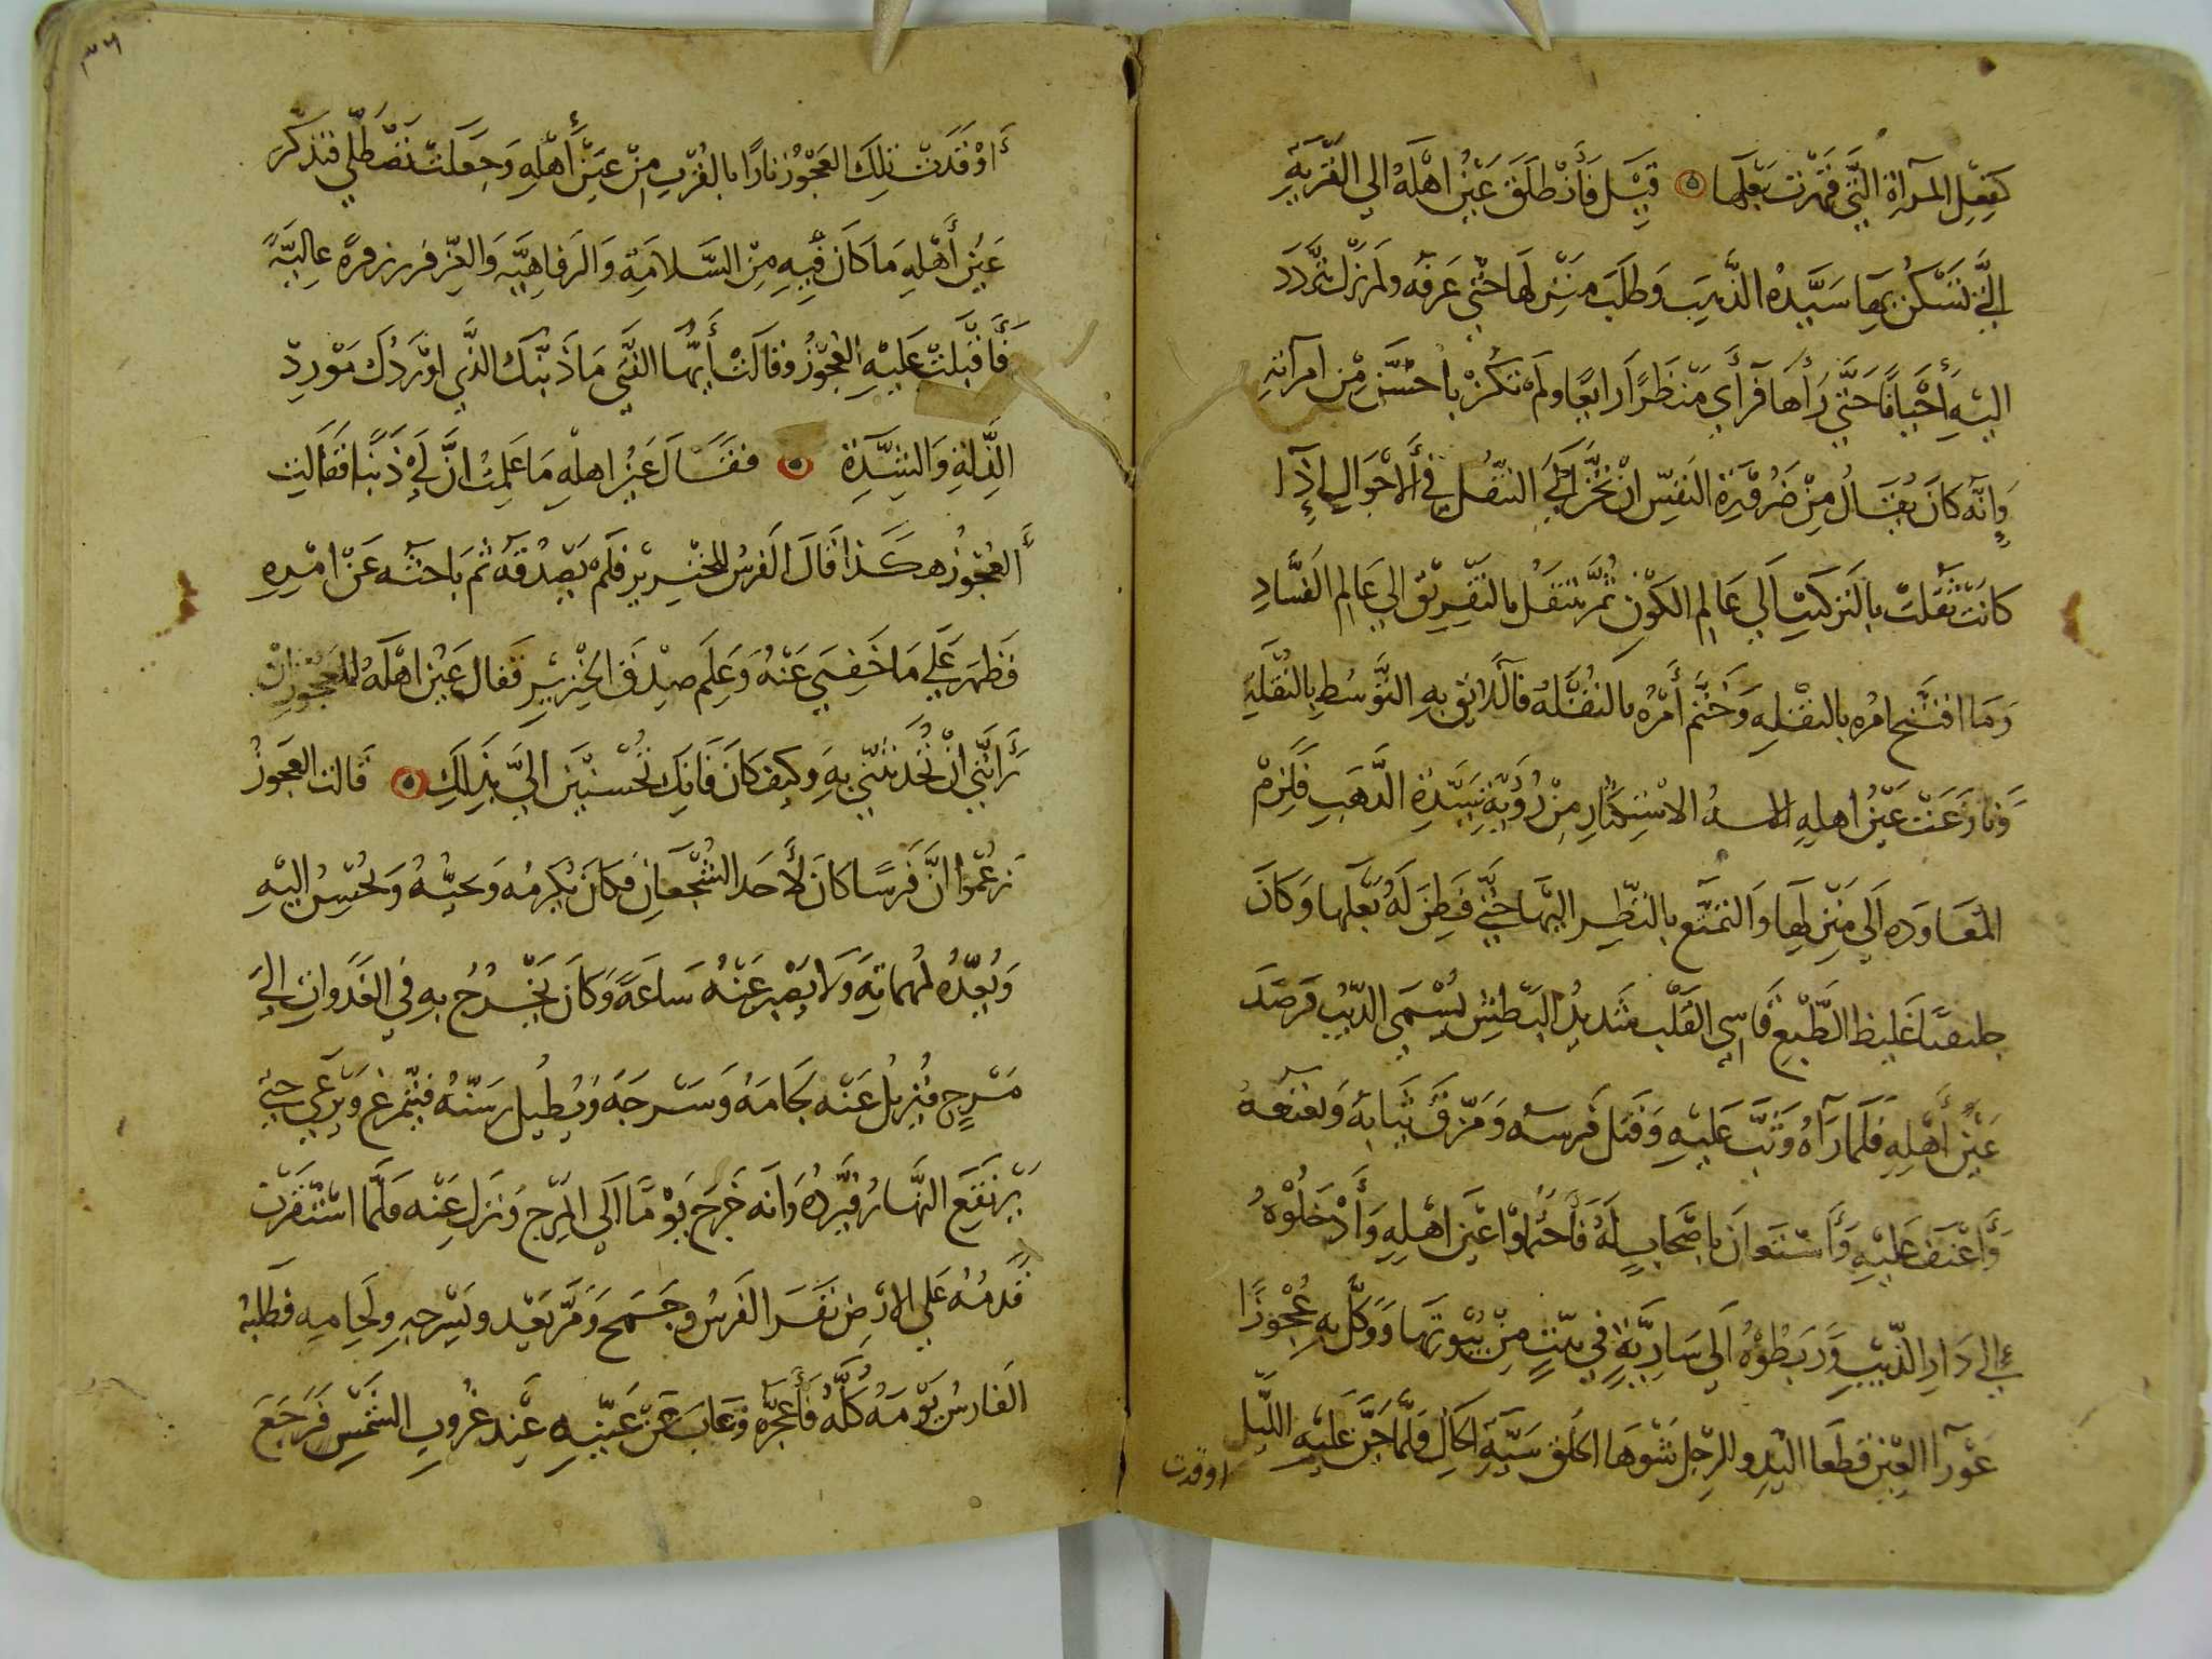 كفعل المرآة التي قهرت بعلها ۞ قيل فأنطلق عين اهله الي القرية
الّتي تسكن بها سيّدة الذهب وطلب منزلها حتي عرفه ولم يزل يتردد
اليه أحيانًا حتّي رأها فرأي منظرًا رابعًا ولم تكن باحسن من امرآته
وانّه كان يقال من ضرورة النفس ان تحن الي التنقل في الاحوال اذا
كانت نقلت بالتركيب الي عالم الكون ثمّ تنتقل بالتفريق الي عالم الفساد
وما افتتح امره بالنقله وختم أمره بالنقله فاللائق به التوسط بالنقلة
ونازعت عين اهله الاستكثار من رؤية سيّدة الذهب فلزم
المعاوده الي منزلها والتمتّع بالنظر اليها حتّي فطن له بعلها وكان
غليظ الطبع قاسي القلب شديد البطش يسمي الذيب فرصد
عين أهله فلما رآه وثب عليه وقتل فرسه ومزّق ثيابه
وأعنف عليه وأستعان باصحاب له فأحتملوا عين اهله وأدخلوه
الي دار الذيب وربطوه الي سارية في بيت من بيوتها ووكّل به عجوزًا
عورآ العين قطعا اليد والرجل شوها الخلق سيّة الحال فلمّا جنّ عليه الليل
اوقدت
أوقدت تلك العجوز نارًا بالقرب من عين أهله وجعلت تصطلي فتذكر
عين أهله ما كان فيه من السّلامة والرفاهيّه والعز فزفر زفرة عاليةً
فأقبلت عليه العجوز وقالت أيّها الفتي ما ذنبك الذي اوردك مورد
الذلة والشدّة ۞ فقال عين اهله ما علمت انّ لي ذنبًا فقالت
العجوز هكذا قال الفرس للخنزير فلم يصدقه ثم باحثه عن امره
فظهر علي ما خفي عنه وعلم صدق الخنزير فقال عين اهله للعجوز ان
رأيتي ان تحدثيني به وكيف كان فانك تحسنين اليّ بذلك ۞ قالت العجوز
زعموا انّ فرسًا كان لأحد الشجعان فكان يكرمه ويحبّه ويحسن اليه
ويعدّه لمهماته ولا يصبر عنه ساعةً وكان يخرج به في الغدوات الي
مرج فيزيل عنه لجامه وسرجه ويطيل رسنه فيتمرغ ويرعي حتي
يرتفع النهار فيردّه وانه خرج يومًا الي المرج ونزل عنه فلمّا استقرت
قدمه علي الارض نفر الفرس وجمح ومرّ يعدو بسرجه ولجامه فطلبه
الفارس يومه كلّه فأعجزه وغاب عن عينيه عند غروب الشمس فرجع